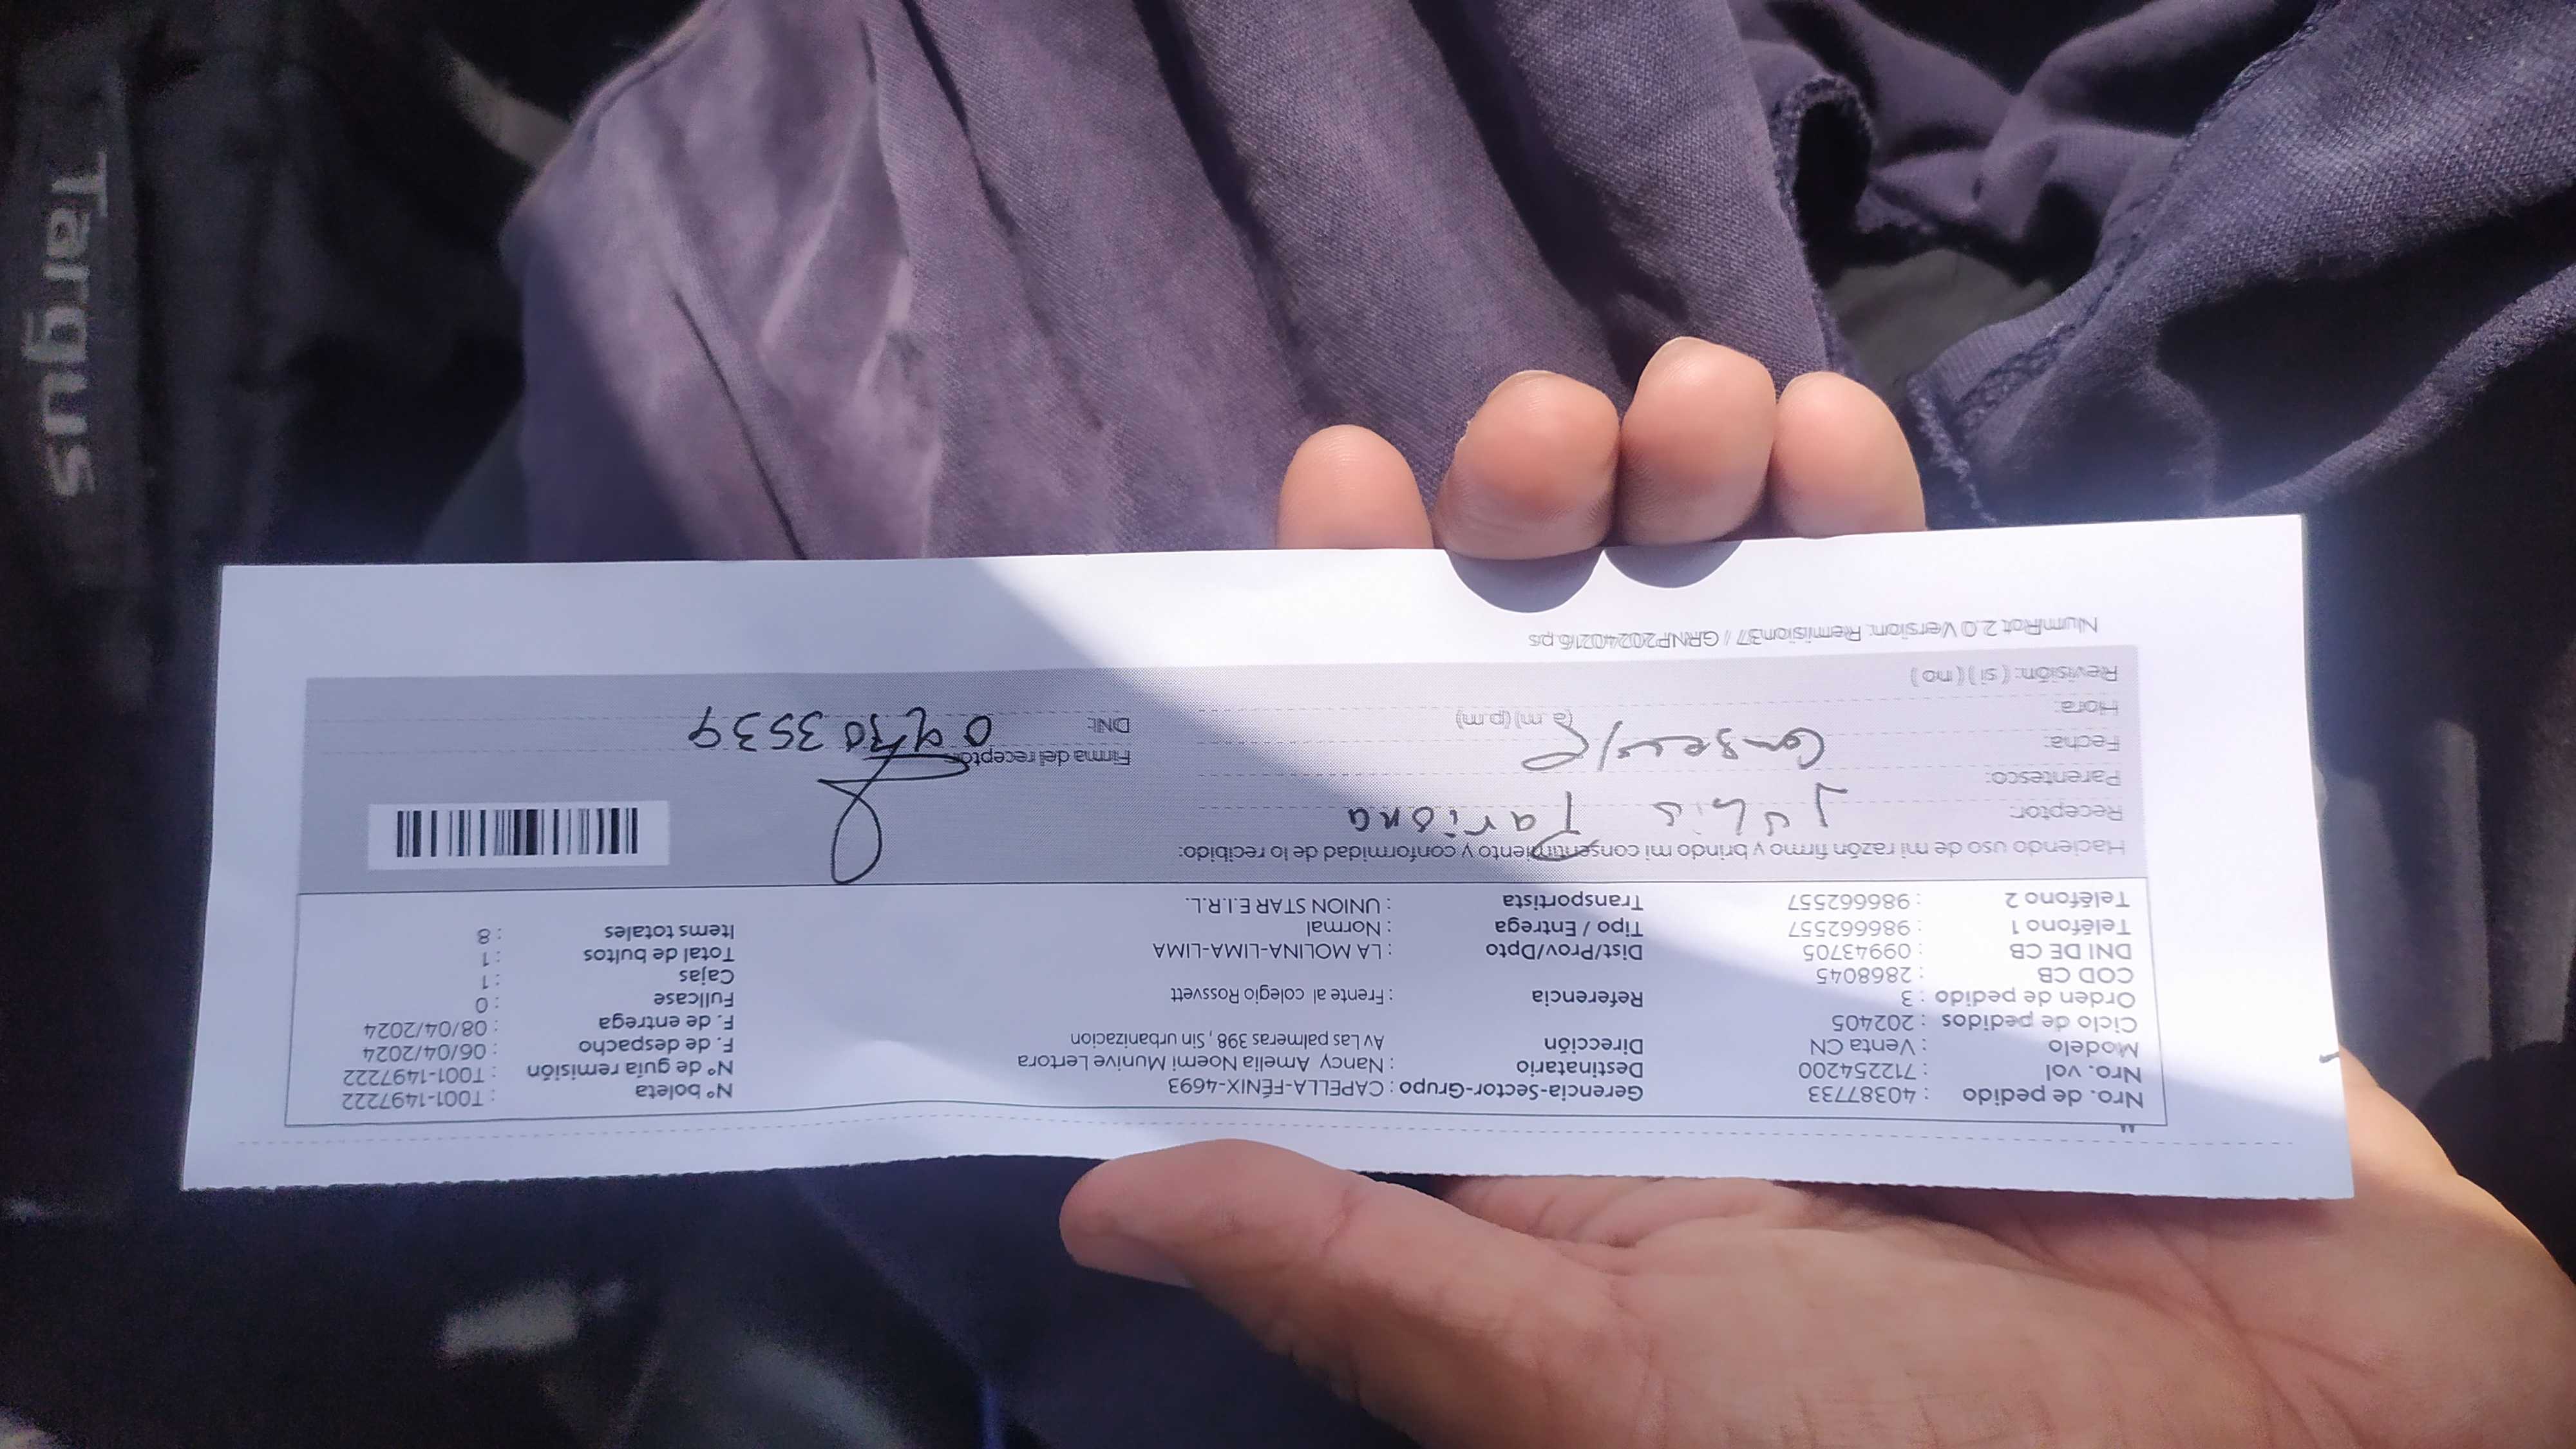 Nro. de pedido : 40387733 Gerencia-Sector-Grupo : CAPELLA-FÉNIX-4693 N° boleta : T001-1497222
Nro. vol : 712254200 Destinatario : Nancy Amelia Noemi Munive Lertora N° de guía remisión : T001-1497222
Modelo : Venta CN Dirección Av Las palmeras 398 , Sin urbanizacion F. de despacho : 06/04/2024
Ciclo de pedidos : 202405 F. de entrega : 08/04/2024
Orden de pedido : 3 Referencia : Frente al colegio Rossvett Fullcase : 0
COD CB : 2868045 Cajas : 1
DNI DE CB : 09943705 Dist/Prov/Dpto : LA MOLINA-LIMA-LIMA Total de bultos : 1
Teléfono 1 : 986662557 Tipo / Entrega : Normal Items totales : 8
Teléfono 2 : 986662557 Transportista : UNION STAR E.I.R.L.
Haciendo uso de mi razón firmo y brindo mi consentimiento y conformidad de lo recibido:
Receptor: Pariona
Parentesco:
Fecha: Firma del receptor
Hora: (a.m) (p.m) DNI:
Revisión: ( si ) ( no )
NumRot 2.0 Version: Remision37 / GRNP20240216.ps
Targus